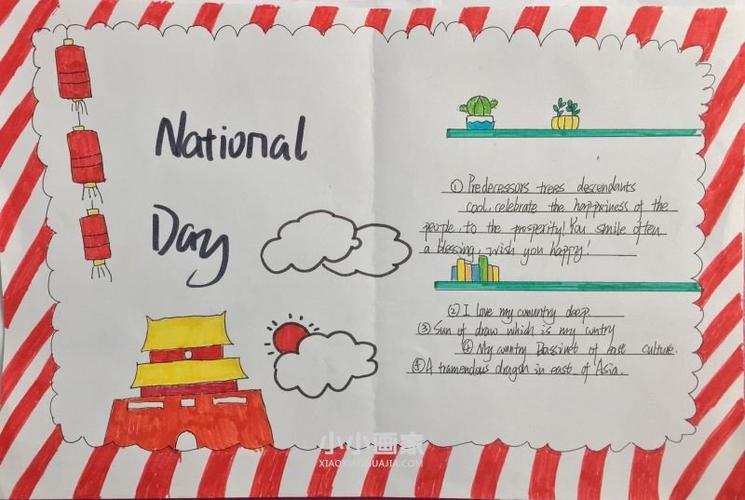 National
Day
① Predecessors trees descendants
cool, celebrate the happiness of the
people, to the prosperity! You smile often
a blessing, wish you happy!
② I love my comuntry deep
③ Sun of draw which is my cuntry
④ My cuntry Passinet of east culture.
A tramendous dragon in east of Asia.
小小画家
XIAOXIAOHUAJIA.COM